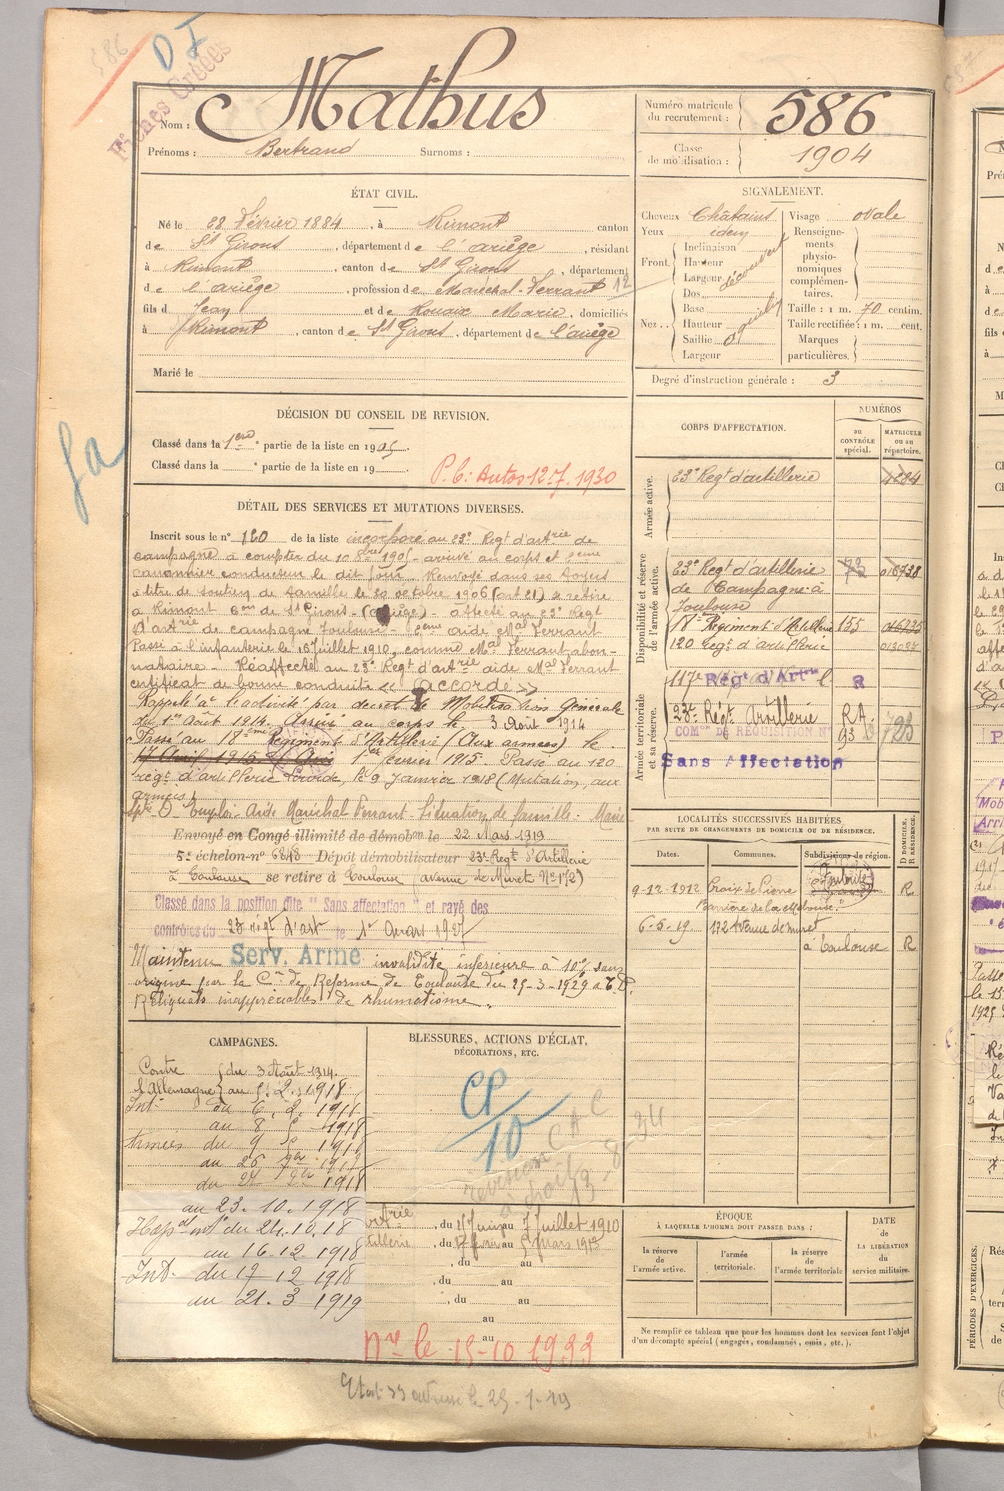 586
D I
Fiches Créées
Nom : Mathus
Prénoms : Bertrand Surnoms :
Numéro matricule du recrutement : 586
Classe de mobilisation : 1904
ÉTAT CIVIL.
Né le 28 Février 1884, à Rimont canton
de St Girons, département de l'ariège, résidant
à Rimont, canton de St Girons, département
de l'ariège, profession de Maréchal-Ferrant 12
fils de Jean et de Rouaix Marie, domiciliés
à Rimont, canton de St Girons, département de l'ariège
Marié le
SIGNALEMENT.
Cheveux Châtains
Yeux idem
Front. Inclinaison Hauteur Largeur découvert
Nez. Dos Base Hauteur Saillie Largeur
Visage ovale
Renseignements physionomiques complémentaires.
Taille : 1 m. 70 centim.
Taille rectifiée : 1 m. cent.
Marques particulières.
Degré d'instruction générale : 3
DÉCISION DU CONSEIL DE REVISION.
Classé dans la 1ère partie de la liste en 1905.
Classé dans la partie de la liste en 19
P.C. Autos 12.7.1930
DÉTAIL DES SERVICES ET MUTATIONS DIVERSES.
Inscrit sous le n° 120 de la liste incorporé au 23e Regt d'artrie de
campagne à compter du 10 8bre 1905 arrivé au corps et 2eme
cannonier conducteur le dit jour. Renvoyé dans ses foyers
à titre de soutien de famille le 30 octobre 1906 (art 21) se retire
à Rimont con de St Girons (ariège) - affecté au 23e Regt
d'artrie de campagne Toulouse - 2eme aide Mal Ferrant
Passé à l'infanterie le 16 Juillet 1910, comme Mal Ferrant abon-
nataire - Réaffecté au 23e Regt d'artrie aide Mal Ferrant
certificat de bonne conduite « accordé »
Rappelé à l'activité par decret de Mobilisation Générale
du 1er Août 1914. Arrivé au corps le 3 Août 1914
Passé au 18eme Régiment d'Artillerie (Aux armées) le
17 Avril 1915 1er février 1915. Passé au 120
régt d'artillerie Lourde, le 9 Janvier 1918 (Mutation, aux
armées)
Spté D Emploi - Aide Maréchal Ferrant - Situation de famille : Marié
Envoyé en Congé illimité de démobon le 22 Mars 1919
5e échelon n° 6848 Dépôt démobilisateur 23e Regt d'Artillerie
à Toulouse se retire à Toulouse avenue de Muret N° 172)
Classé dans la position dite "Sans affectation" et rayé des
contrôles du 23 régt d'art le 1er Mars 1927
Maintenu Serv. Armé invalidité inférieure à 10% sans
origine par la Con de Réforme de Toulouse du 25-3-1929
Reliquats inappréciables de rhumatisme
CORPS D'AFFECTATION.
NUMÉROS
au CONTRÔLE spécial.
MATRICULE ou au répertoire.
Armée active.
23e Regt d'artillerie 4284
Disponibilité et réserve de l'armée active.
23e Regt d'artillerie 73
de Campagne à
Toulouse
18e Régiment d'Artillerie 155
120 Regt d'artillerie 013097
Armée territoriale et sa réserve.
117e Régt d'Artie R
23e Régt Artillerie RA 793
COMon DE REQUISITION N° 93
Sans Affectation
LOCALITÉS SUCCESSIVES HABITÉES
PAR SUITE DE CHANGEMENTS DE DOMICILE OU DE RÉSIDENCE.
Dates. Communes. Subdivisions de région. D DOMICILE. R RÉSIDENCE.
9-12-1912 Croix de Pierre Toulouse R
6.5.19 172 Avenue de muret
à Toulouse R
CAMPAGNES.
Contre du 3 Août 1914.
l'Allemagne au 5.2.1918
Int. du 6.2.1918
au 8 1918
Armées du 9 1918
au 23.10.1918
Hop du 24.10.18
au 16.12.1918
Int. du 17 12 1918
au 21.3 1919
BLESSURES, ACTIONS D'ÉCLAT,
DÉCORATIONS, ETC.
CP/10
, du au 7 Juillet 1910
, du au 5 mars 1913
, du au
, du au
, du au
au
au
Nre le 15-10 1933
ÉPOQUE
À LAQUELLE L'HOMME DOIT PASSER DANS :
la réserve de l'armée active.
l'armée territoriale.
la réserve de l'armée territoriale
DATE de LA LIBÉRATION du service militaire.
Ne remplir ce tableau que pour les hommes dont les services font l'objet
d'un décompte spécial (engagés, condamnés, omis, etc.).
PÉRIODES D'EXERCICES.